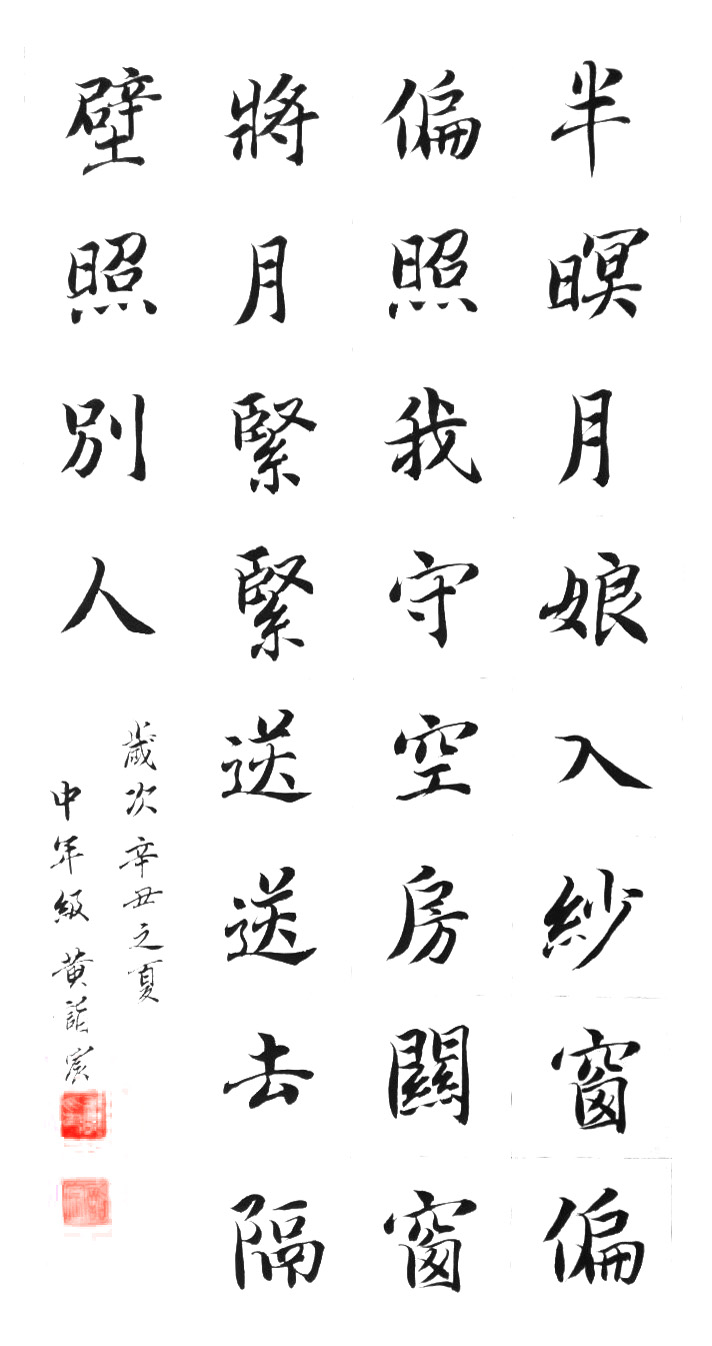 半暝月娘入紗窗偏
偏照我守空房關窗
將月緊緊送送去隔
壁照別人
歲次辛丑之夏
中年級 黃詣宸